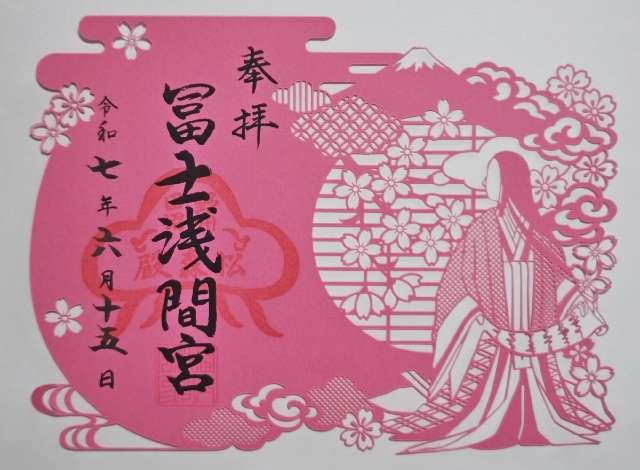 奉拝
冨士浅間宮
令和七年六月十五日